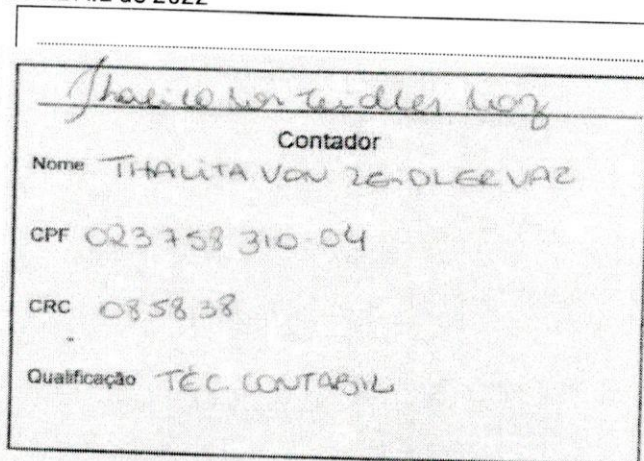 de 2022
Contador
Nome THALITA VON ZEIDLER VAZ
CPF 023 758 310-04
CRC 085838
Qualificação TÉC. CONTABIL